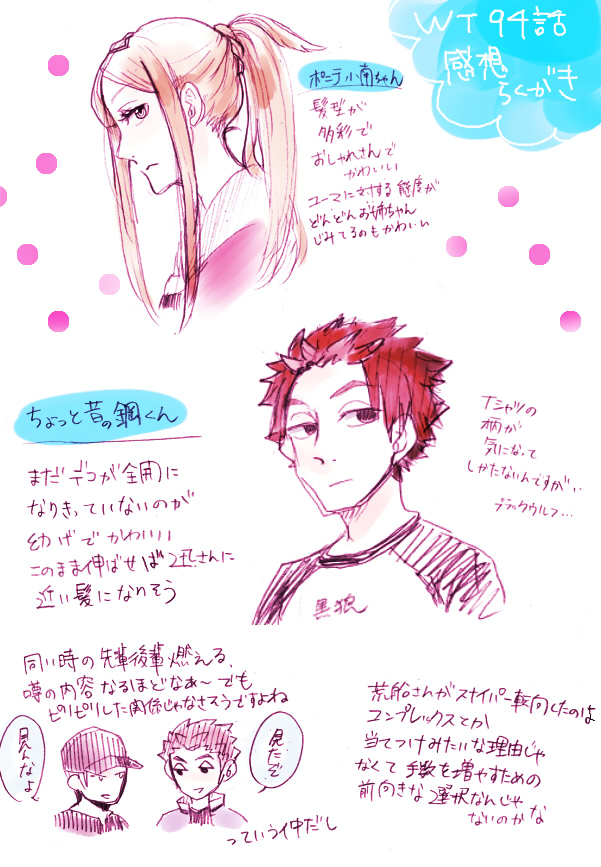 WT94話
感想
らくがき
ポニテ小南ちゃん
髪型が
多彩で
おしゃれさんで
かわいい
ユーマに対する態度が
どんどんお姉ちゃん
じみてるのもかわいい
ちょっと昔の鋼くん
まだデコが全開に
なりきっていないのが
幼げでかわいい
このまま伸ばせば迅さんに
近い髪になりそう
Tシャツの
柄が
気になって
しかたないんですが…
ブラックウルフ…
黒狼
同い時の先輩後輩燃える、
噂の内容なるほどなあ〜でも
ピリピリした関係じゃなさそうですよね
見んなよ
見たぞ
っていう仲だし
荒船さんがスナイパー転向したのは
コンプレックスとか
当てつけみたいな理由じゃ
なくて手数を増やすための
前向きな選択なんじゃ
ないのかな